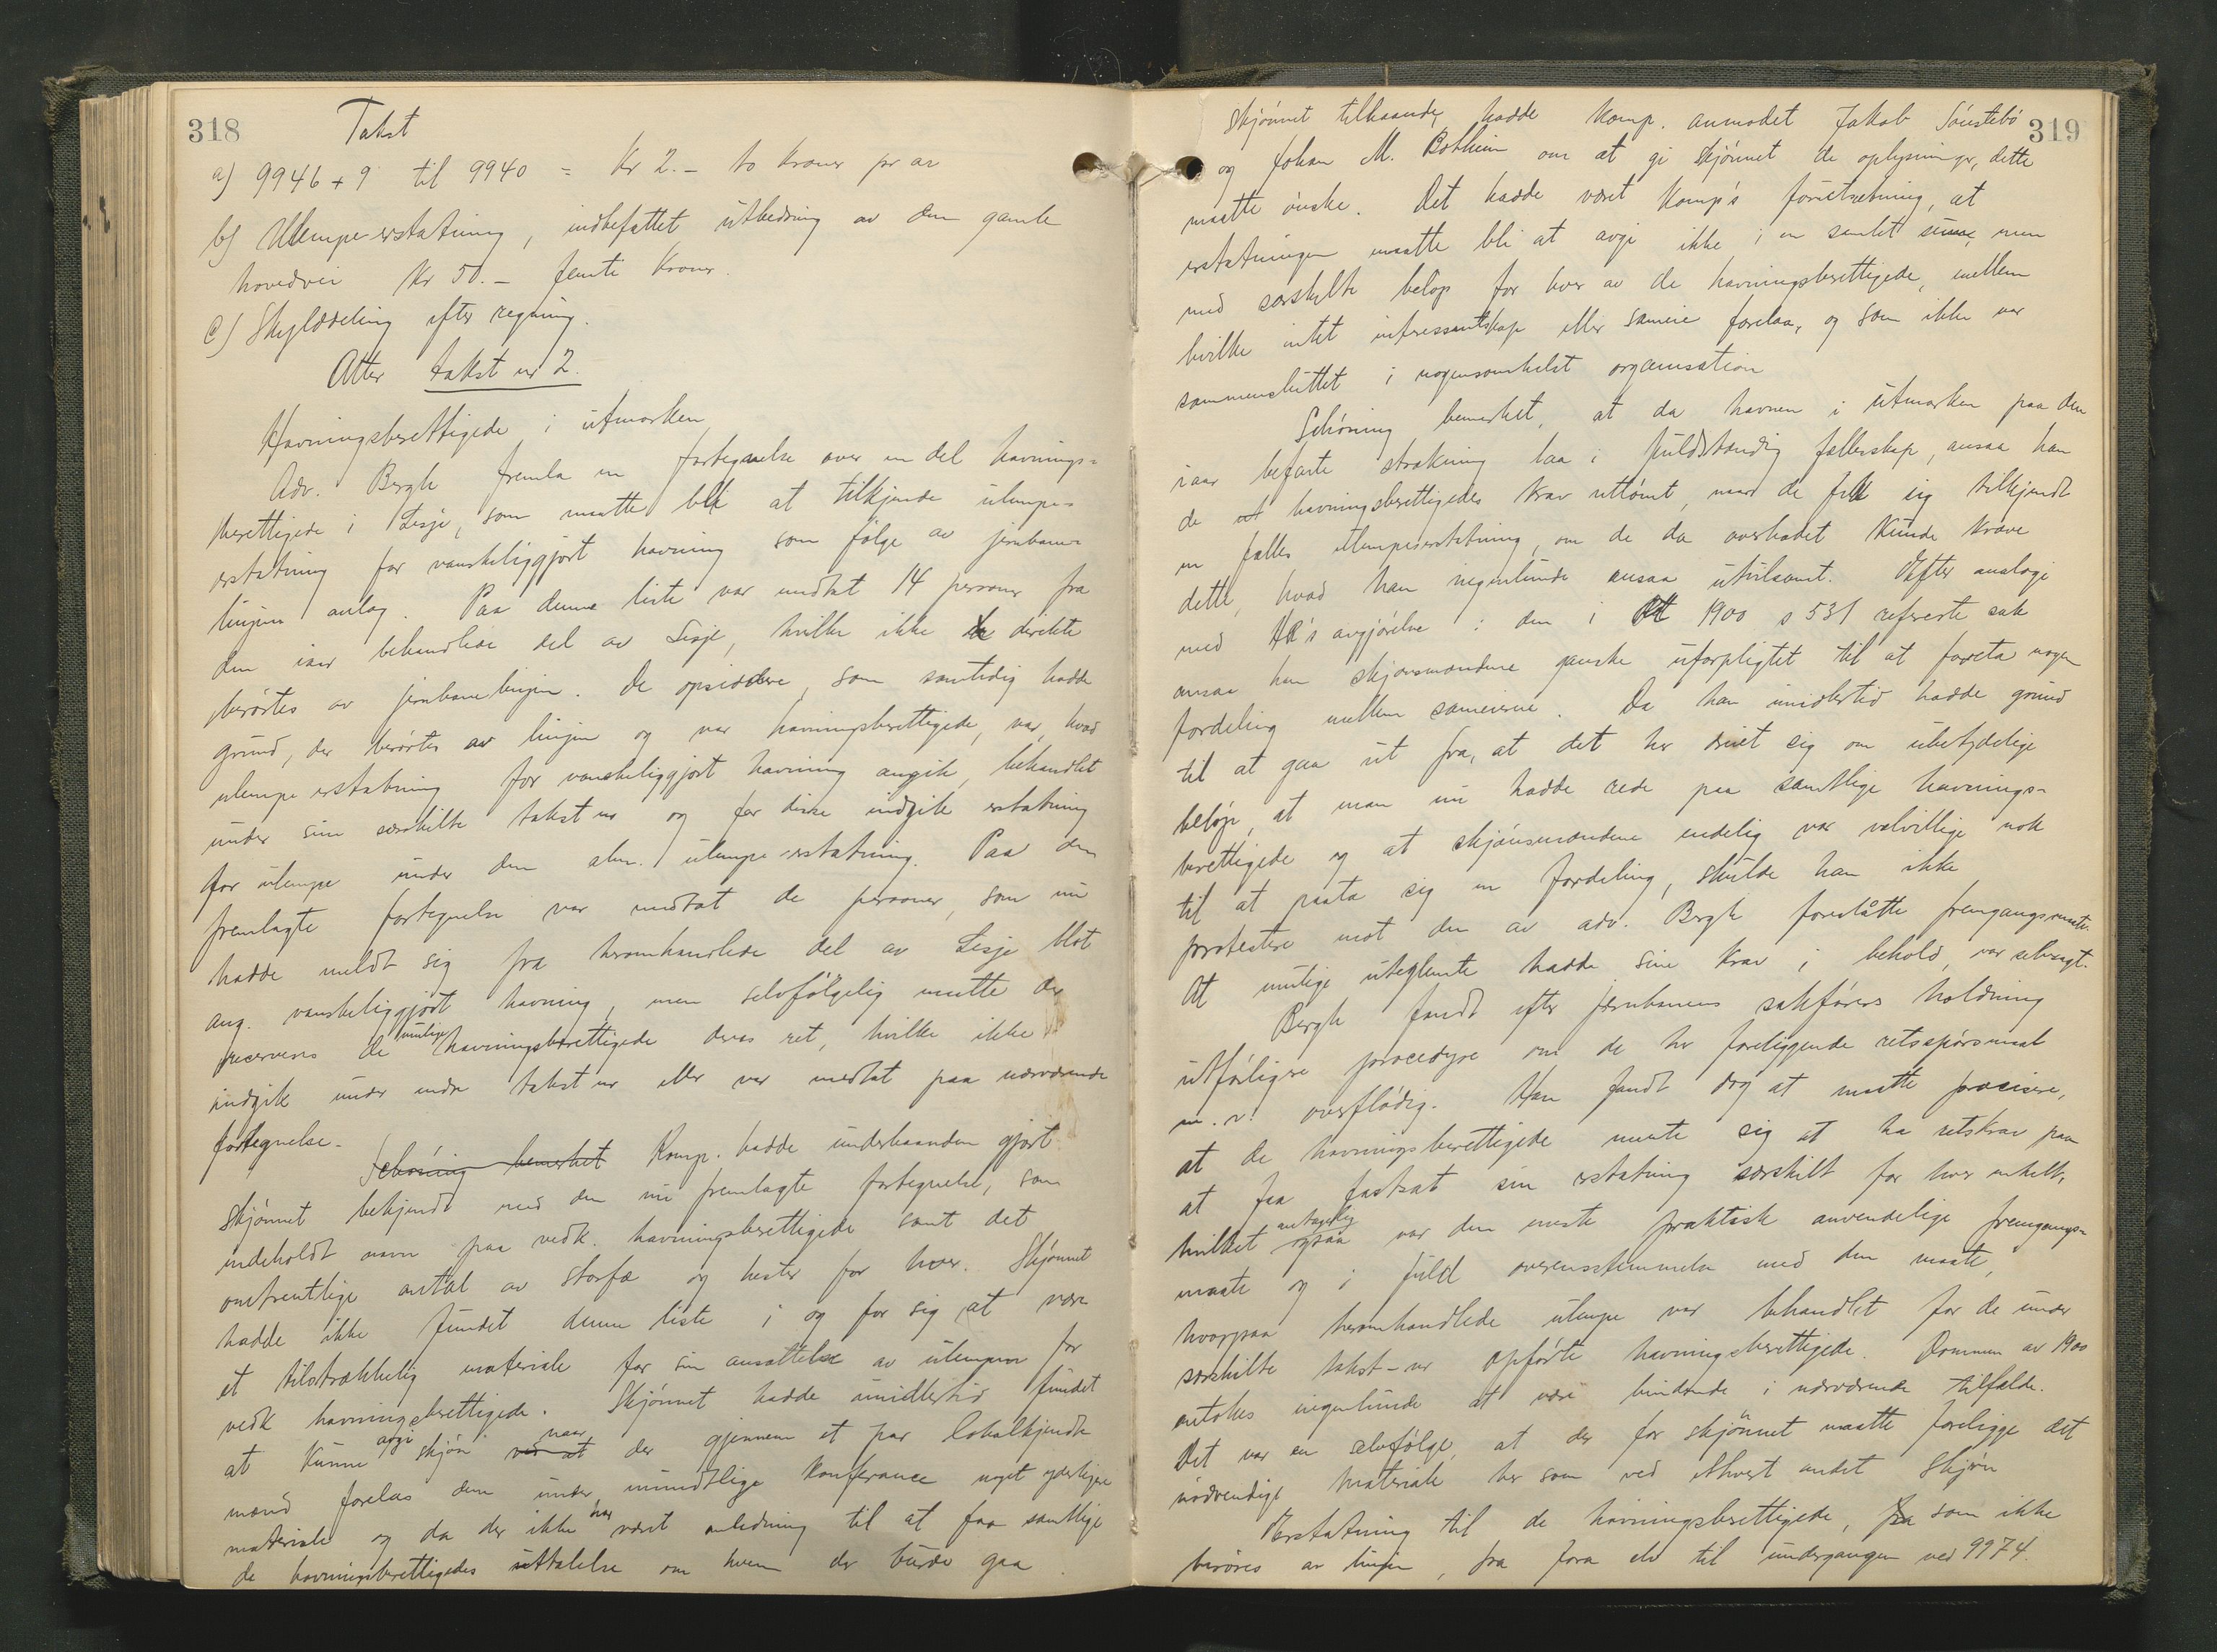 318
Takst
a) 9946 + 9 til 9940 = Kr 2.- to kroner pr ar
b) Ulempeerstatning, indbefattet utbedring av den gamle
hovedvei Kr 50.- femti kroner.
c) Skylddeling efter regning.
Atter takst nr 2.
Havningsberettigede i utmarken
Adv. Bergh fremla en fortegnelse over en del havnings-
berettigede i Lesje, som maatte bli at tilkjende ulempe-
erstatning for vanskeliggjort havning som følge av jernbane-
linjens anlæg. Paa denne liste var medtat 14 personer fra
den iaar behandlede del av Lesje, hvilke ikke direkte
berørtes av jernbanelinjen. De opsiddere, som samtidig hadde
grund, der berørtes av linjen og var havningsberettigede, var, hvad
ulempeerstatning for vanskeliggjort havning angik, behandlet
under sine særskilte takst nr og for disse indgik erstatning
for ulempe under den alm. ulempe-erstatning. Paa den
fremlagte fortegnelse var medtat de personer, som nu
hadde meldt sig fra heromhandlede del av Lesje blot
ang. vanskeliggjort havning, men selvfølgelig maatte der
reserveres de mulige havningsberettigede deres ret, hvilke ikke
indgik under andre takst nr eller var medtat paa nærværende
fortegnelse.
Schøning bemerket Komp. hadde underhaanden gjort
skjønnet bekjendt med den nu fremlagte fortegnelse, som
indeholdt navn paa vedk. havningsberettigede samt det
omtrentlige antal av storfæ og hester for hver. Skjønnet
hadde ikke fundet denne liste i og for sig at være
et tilstrækkelig materiale for sin ansættelse av ulempen for
vedk havningsberettigede. Skjønnet hadde imidlertid fundet
at kunne avgi skjøn ved at naar der gjennem et par lokalkjendte
mænd forelaa dem under mundtlige konferance noget yderligere
materiale og da der ikke har været anledning til at faa samtlige
de havningsberettigedes uttalelse om hvem der burde gaa
319
skjønnet tilhaande, hadde komp. anmodet Jakob Sønstebø
og Johan M. Botheim om at gi skjønnet de oplysninger, dette
maatte ønske. Det hadde været komp's forutsætning, at
erstatningen maatte bli at avgi ikke i en samlet sum, men
med særskilte beløp for hver av de havningsberettigede, mellem
hvilke intet interessentskap eller sameie forelaa, og som ikke var
sammensluttet i nogensomhelst organisation
Schøning bemerket, at da havnen i utmarken paa den
iaar befarte strækning laa i fuldstændig fællesskap, ansaa han
de havningsberettigedes krav uttømt, naar de fik sig tilkjendt
en fælles ulempeserstatning, om de da overhodet kunde kræve
dette, hvad han ingenlunde ansaa utvilsomt. Efter analogi
med HR's avgjørelse i den i Rt 1900 s 531 refererte sak
ansaa han skjønsmændene ganske uforpligtet til at foreta nogen
fordeling mellem sameierne. Da han imidlertid hadde grund
til at gaa ut fra, at det her dreiet sig om ubetydelige
beløp, at man nu hadde rede paa samtlige havnings-
berettigede og at skjønsmændene endelig var velvillige nok
til at paata sig en fordeling, skulde han ikke
protestere mot den av adv. Bergh foreslåtte fremgangsmaate.
At mulige uteglemte hadde sine krav i behold, var selvsagt.
Bergh fandt efter jernbanens sakførers holdning
utførligere procedyre om de her foreliggende retsspørsmaal
m.v. overflødig. Han fandt dog at maatte præcisere,
at de havningsberettigede mente sig at ha retskrav paa
at faa fastsat sin erstatning særskilt for hver enkelt,
hvilket antagelig ogsaa var den mest praktisk anvendelige fremgangs-
maate og i fuld overensstemmelse med den maate,
hvorpaa heromhandlede ulempe var behandlet for de under
særskilte takst-nr opførte havningsberettigede. Dommen av 1900
antokes ingenlunde at være bindende i nærværende tilfælde.
Det var en selvfølge, at der for skjønnet maatte foreligge det
nødvendige materiale her som ved ethvert andet skjøn
Erstatning til de havningsberettigede, som ikke
berøres av linjen, fra Jora elv til undergangen ved 9974.